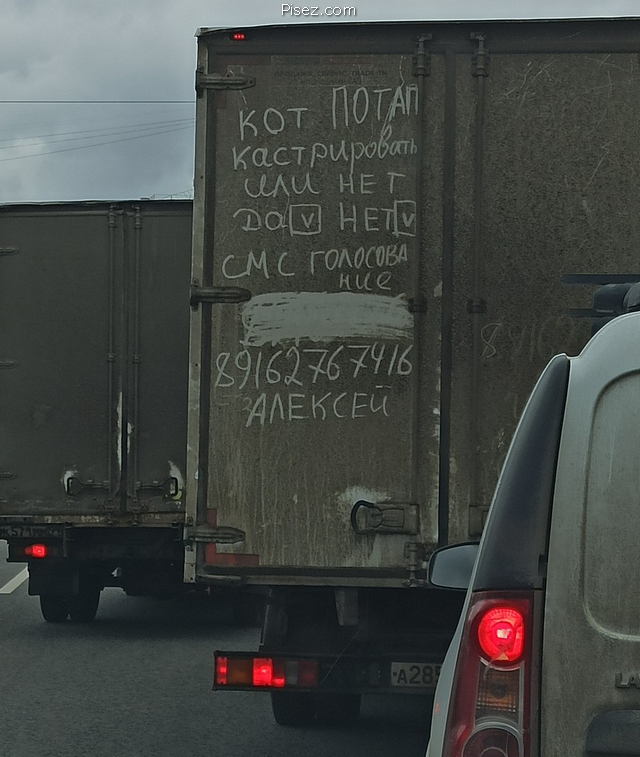 Pisez.com
КОТ ПОТАП
кастрировать
или НЕТ
ДА V НЕТ V
СМС ГОЛОСОВА
ние
89162767416
АЛЕКСЕЙ
8916
А285